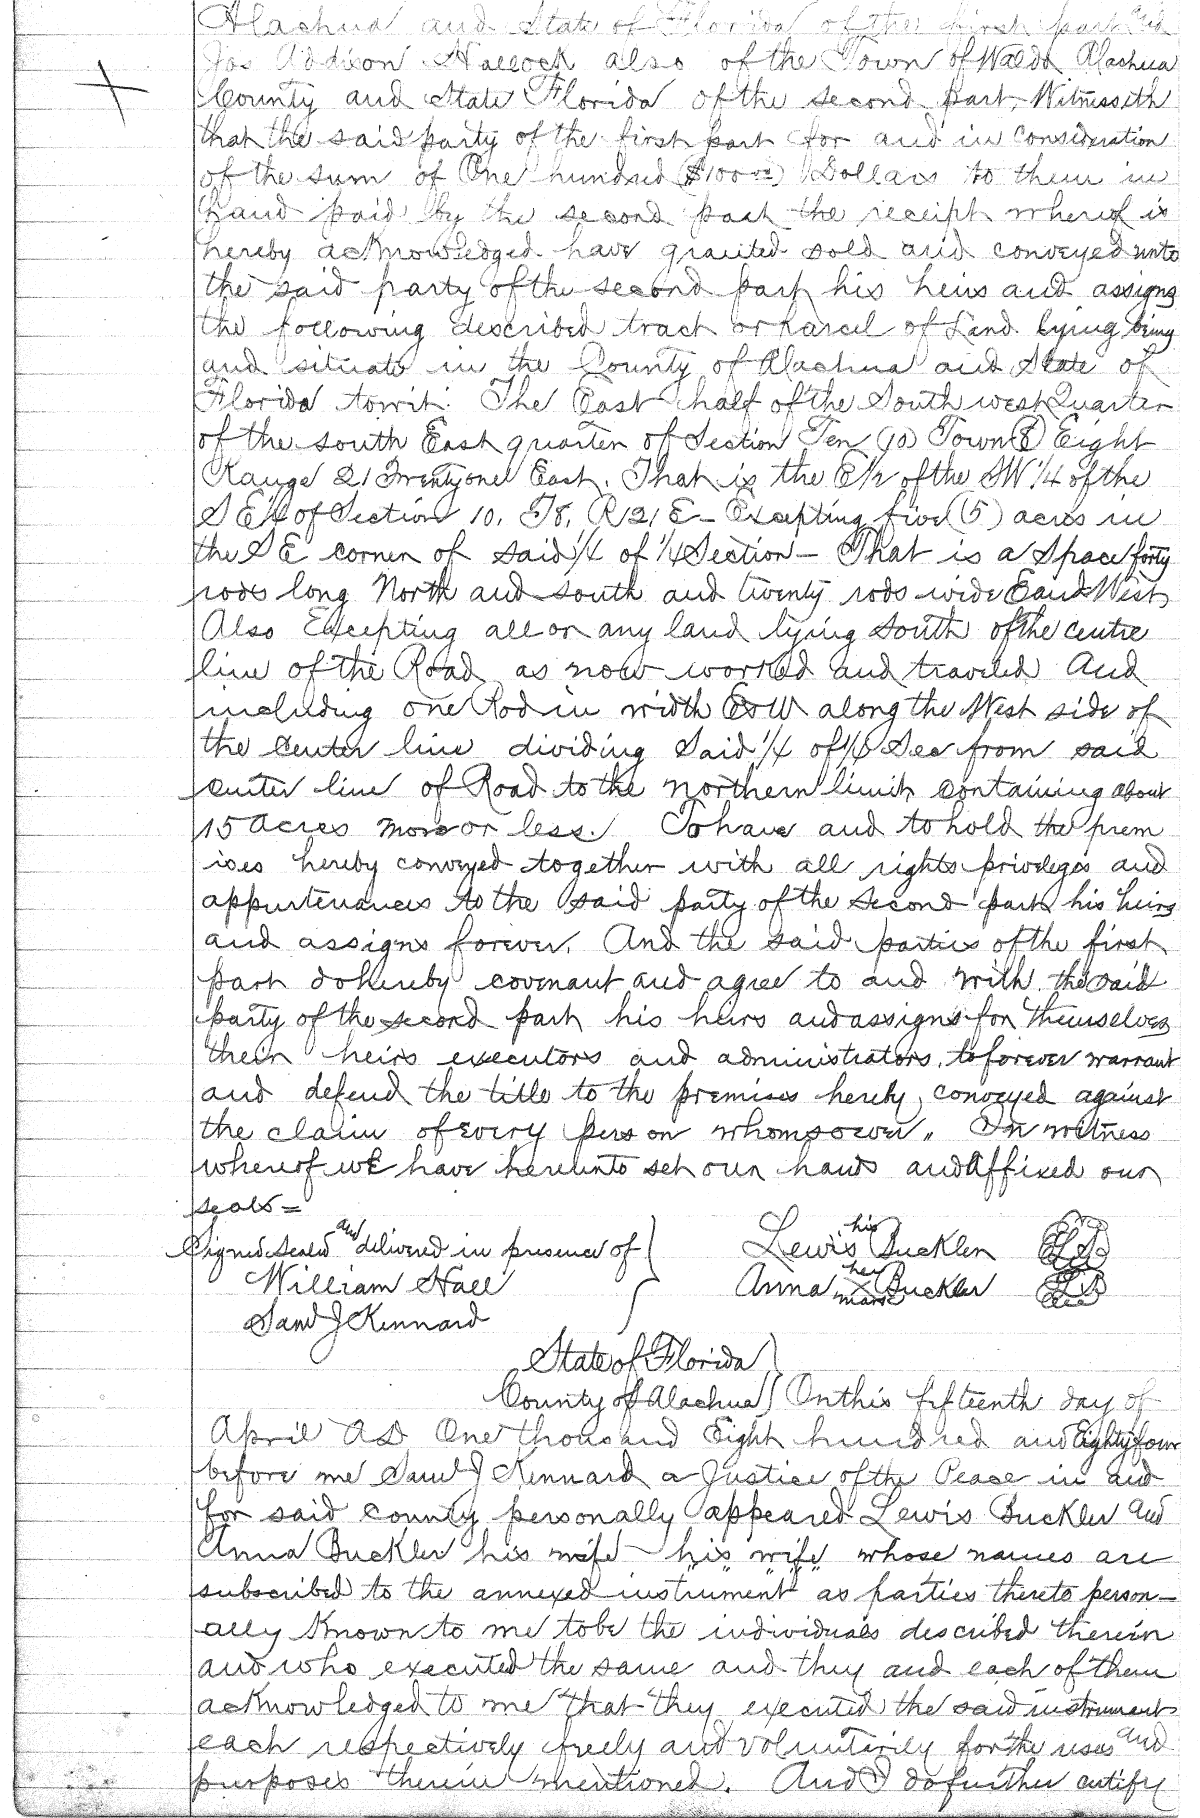 Alachua and State of Florida of the first part and
Jas Addison Hallock also of the Town of Waldo Alachua
County and State Florida of the second part, Witnesseth
that the said party of the first part for and in consideration
of the sum of One hundred ($100 00) Dollars to them in
hand paid by the second part the receipt whereof is
hereby acknowledged have granted sold and conveyed unto
the said party of the second part his heirs and assigns
the following described tract or parcel of Land lying being
and situate in the County of Alachua and State of
Florida towit. The East half of the South west Quarter
of the south East quarter of Section Ten (10) Town (8) Eight
Range 21 Twenty one East. That is the E 1/2 of the SW 1/4 of the
S E 1/4 of Section 10. T8. R 21 E - Excepting five (5) acres in
the S E corner of said 1/4 of 1/4 Section - That is a space forty
rods long North and south and twenty rods wide E and West
Also Excepting all or any land lying South of the centre
line of the Road as now worked and traveled And
including one Rod in width E & W along the West side of
the center line dividing Said 1/4 of 1/4 Sec from said
center line of Road to the northern limit containing about
15 acres more or less. To have and to hold the prem
ises hereby conveyed together with all rights privileges and
appurtenances to the said party of the second part his heirs
and assigns forever. And the said parties of the first
part do hereby covenant and agree to and with the said
party of the second part his heirs and assigns for themselves
their heirs executors and administrators, to forever warrant
and defend the title to the premises hereby conveyed against
the claim of every person whomsoever. In witness
whereof we have hereunto set our hands and Affixed our
seals =
Signed Sealed and delivered in presence of } Lewis his Buckler
William Hall Anna her X mark Buckler
Saml J Kennard
State of Florida }
County of Alachua } On this fifteenth day of
April AD One thousand Eight hundred and Eighty four
before me Saml J Kennard a Justice of the Peace in and
for said county personally appeared Lewis Buckler and
Anna Buckler his wife - "his" "wife" whose names are
subscribed to the annexed instrument as parties thereto person-
ally known to me to be the individuals described therein
and who executed the same and they and each of them
acknowledged to me that they executed the said instrument
each respectively freely and voluntarily for the uses and
purposes therein mentioned. And I do further certify